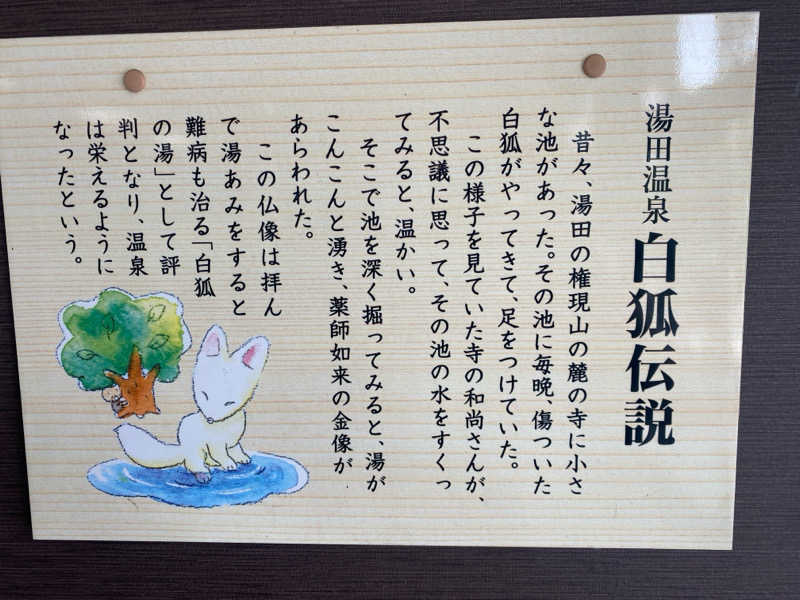 湯田温泉 白狐伝説
昔々、湯田の権現山の麓の寺に小さ
な池があった。その池に毎晩、傷ついた
白狐がやってきて、足をつけていた。
この様子を見ていた寺の和尚さんが、
不思議に思って、その池の水をすくっ
てみると、温かい。
そこで池を深く掘ってみると、湯が
こんこんと湧き、薬師如来の金像が
あらわれた。
この仏像は拝ん
で湯あみをすると
難病も治る「白狐
の湯」として評
判となり、温泉
は栄えるように
なったという。